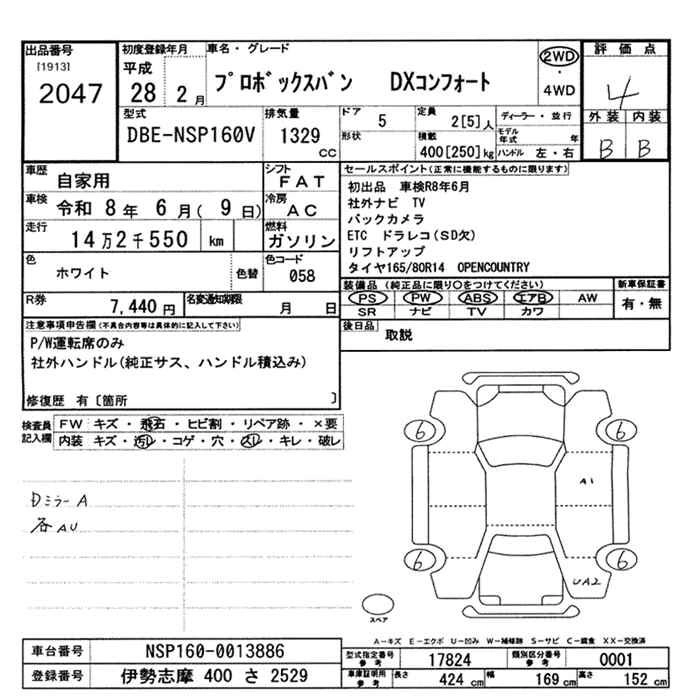 出品番号
[1913]
2047
初度登録年月
平成
28 2月
車名・グレード
プロボックスバン DXコンフォート
2WD
・
4WD
評価点
4
外装 内装
B B
型式
DBE-NSP160V
排気量
1329
CC
ドア
5
形状
定員
2[5]人
積載
400[250]kg
ディーラー・並行
モデル年式 年
ハンドル 左・右
車歴
自家用
シフト
FAT
車検
令和 8年 6月( 9日)
冷房
AC
走行
14万2千550 km
燃料
ガソリン
色
ホワイト
色替
色コード
058
R券
7,440円
名変通知期限
月 日
セールスポイント(正常に機能するものに限ります)
初出品 車検R8年6月
社外ナビ TV
バックカメラ
ETC ドラレコ(SD欠)
リフトアップ
タイヤ165/80R14 OPENCOUNTRY
装備品(純正品に限り○をつけてください)
PS PW ABS エアB AW
SR ナビ TV カワ
新車保証書
有・無
後日品
取説
注意事項申告欄(不具合内容等は具体的に記入して下さい)
P/W運転席のみ
社外ハンドル(純正サス、ハンドル積込み)
修復歴 有〔箇所 〕
検査員
記入欄
FW キズ・飛石・ヒビ割・リペア跡・×要
内装 キズ・汚レ・コゲ・穴・スレ・キレ・破レ
Dミラー A
各AU
6
6
A1
6
6
UA2
スペア
A-キズ E-エクボ U-凹み W-補修跡 S-サビ C-腐食 XX-交換済
車台番号
NSP160-0013886
登録番号
伊勢志摩 400 さ 2529
型式指定番号
参考
17824
類別区分番号
参考
0001
車庫証明用
参考
長さ
424 cm
幅
169 cm
高さ
152 cm